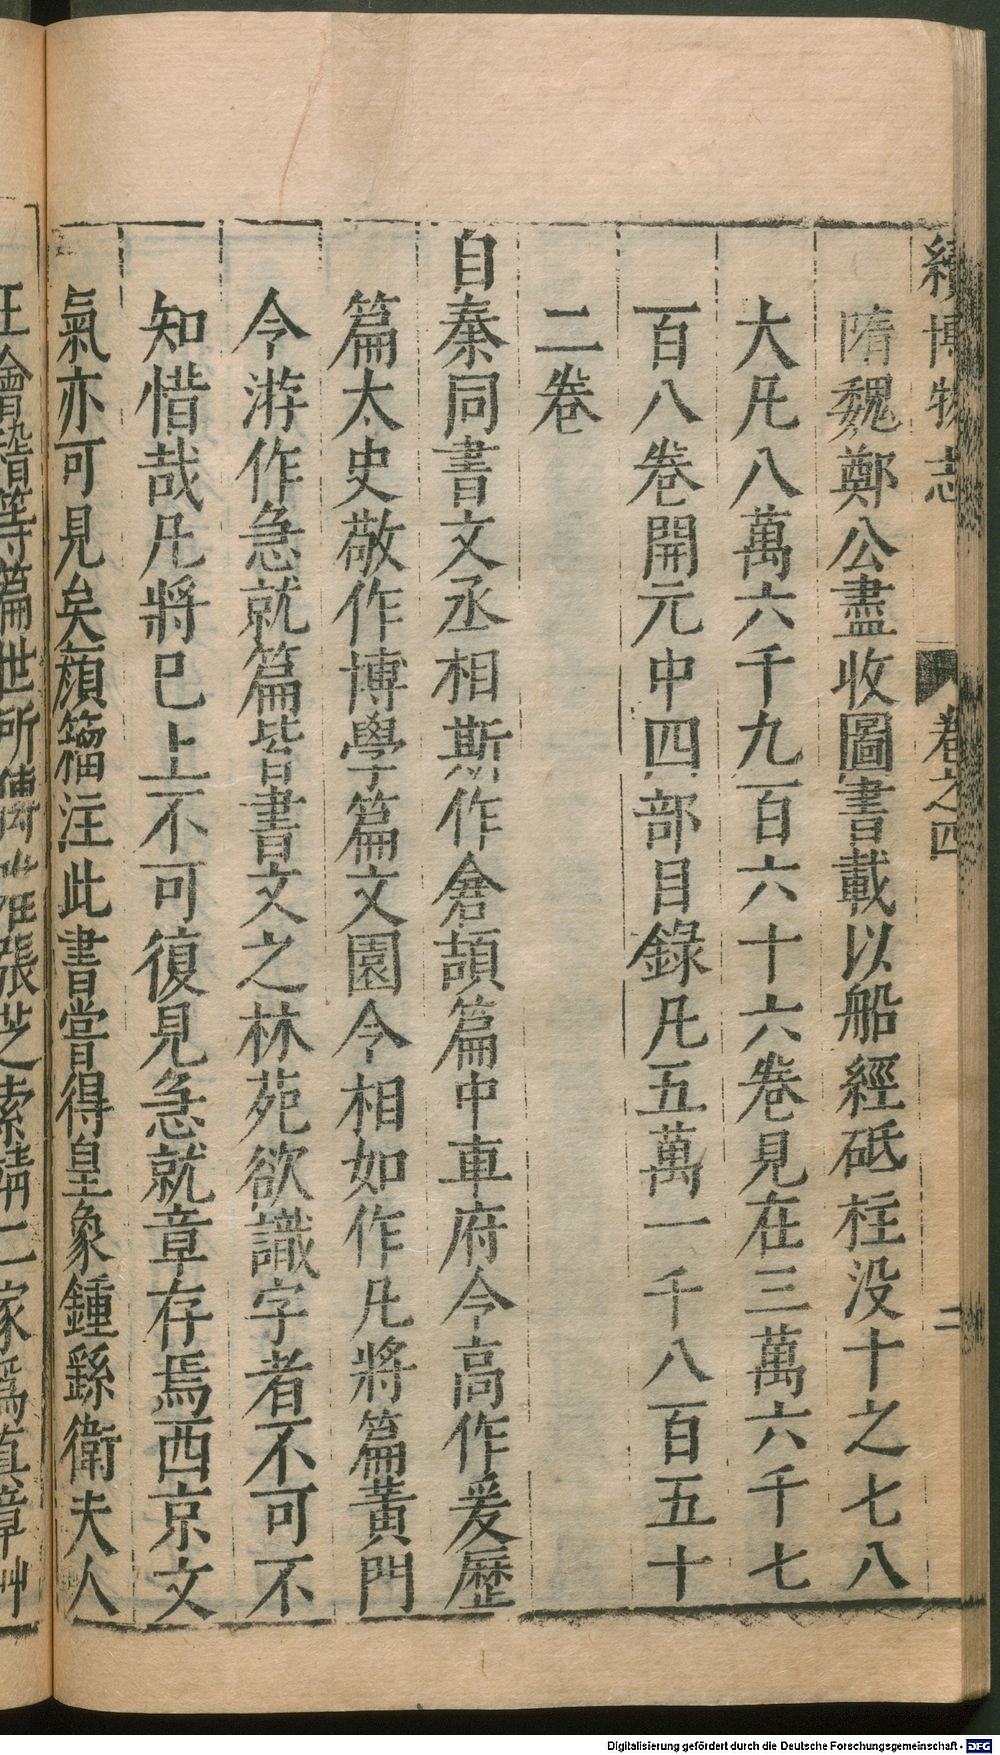 續博物志 卷之四 二
隋魏鄭公盡收圖書載以船經砥柱没十之七八
大凡八萬六千九百六十六卷見在三萬六千七
百八卷開元中四部目錄凡五萬一千八百五十
二卷
自秦同書文丞相斯作倉頡篇中車府令高作爰歷
篇太史敬作博學篇文園令相如作凡將篇黄門
令游作急就篇皆書文之林苑欲識字者不可不
知惜哉凡將已上不可復見急就章存焉西京文
氣亦可見矣顔籀注此書嘗得皇象鍾繇衛夫人
王會稽等篇世所傳惟張芝索靖二家爲真章艸
Digitalisierung gefördert durch die Deutsche Forschungsgemeinschaft - DFG